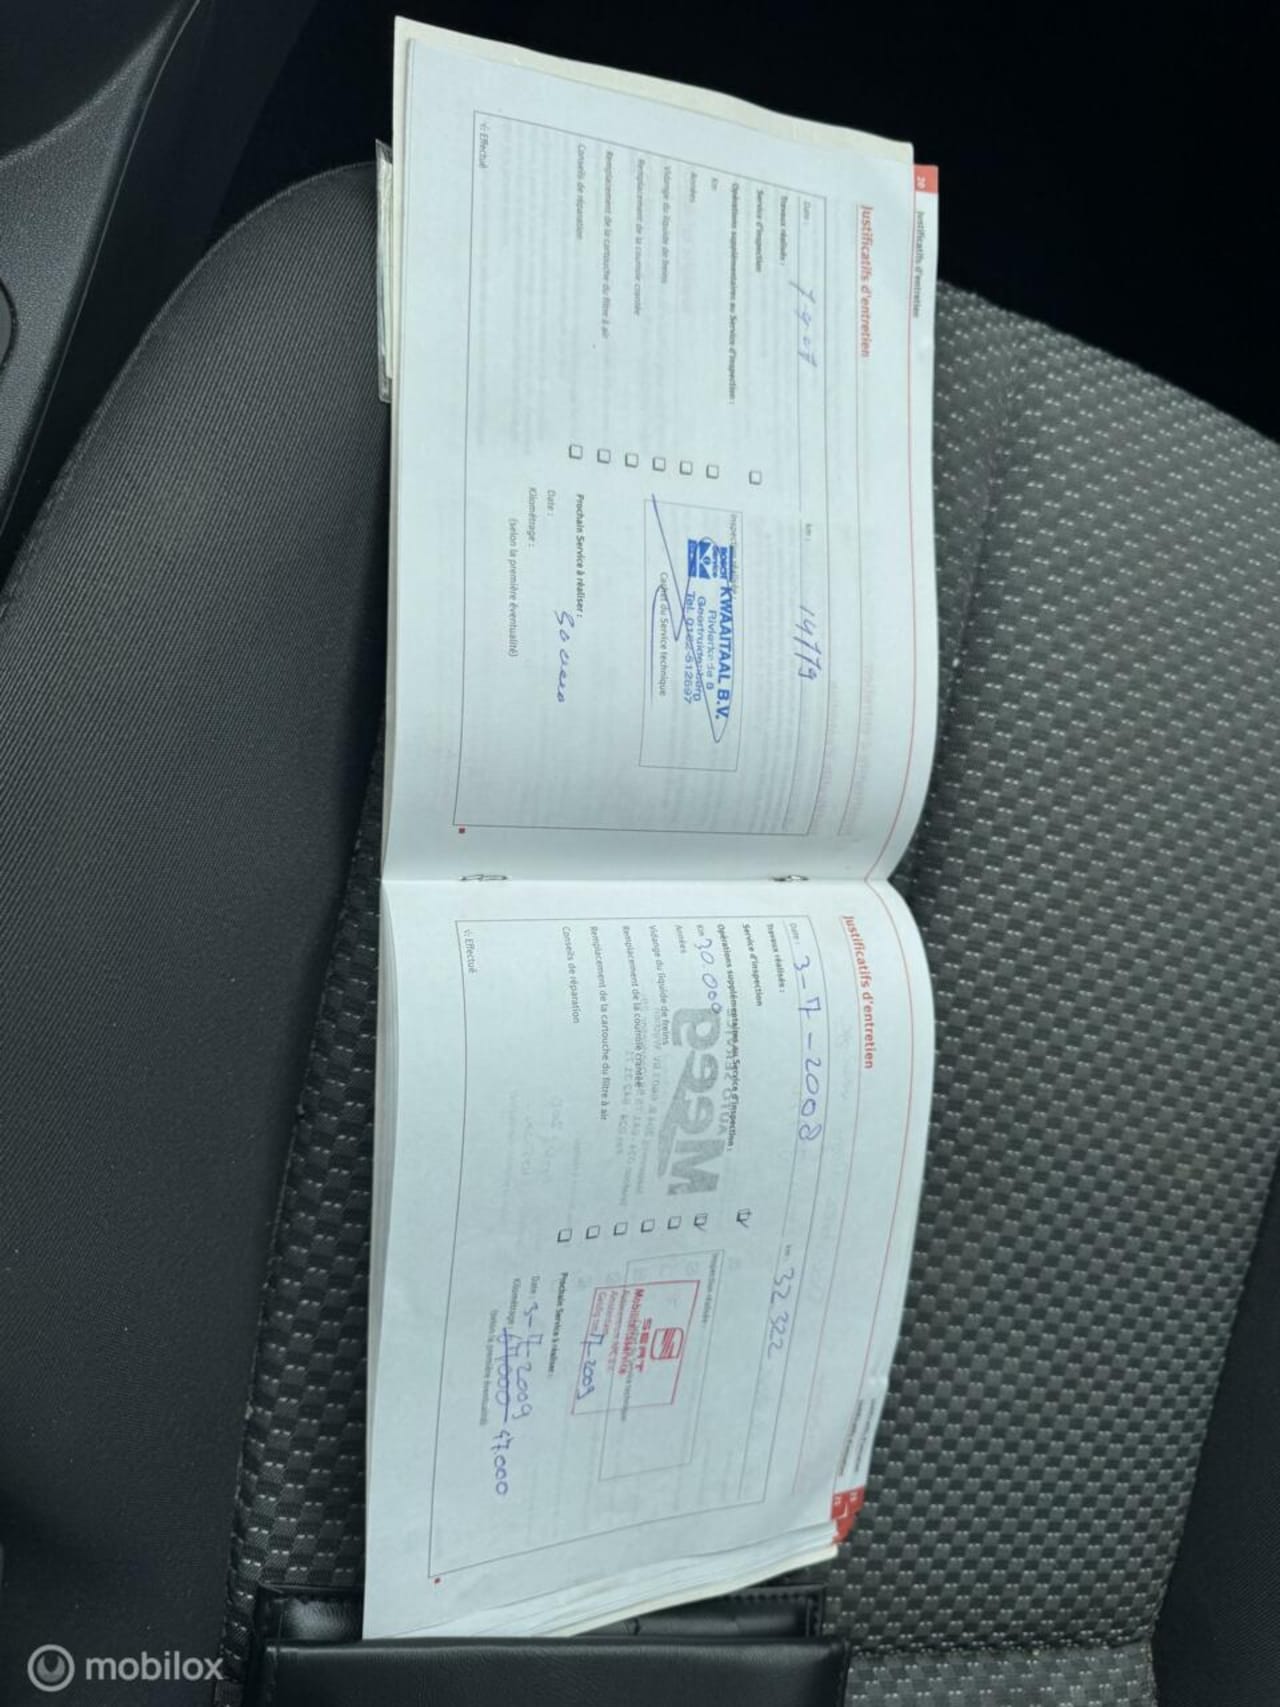 20
Justificatifs d'entretien
Justificatifs d'entretien
Date : 7-9-07 km : 14779
Travaux réalisés :
Service d'inspection
Opérations supplémentaires au Service d'inspection :
Km
Années
Vidange du liquide de freins
Remplacement de la courroie crantée
Remplacement de la cartouche du filtre à air
Conseils de réparation
BOSCH Service
KWAAITAAL B.V.
Rivierkade 8
Geertruidenberg
Tel. 0162-512697
Cachet du Service technique
Prochain Service à réaliser :
Date :
30 000
Kilométrage :
(selon la première éventualité)
√: Effectué
Justificatifs d'entretien
Date : 3-7-2008 km : 32322
Travaux réalisés :
Service d'inspection
Opérations supplémentaires au Service d'inspection :
Km 30.000
Années
Vidange du liquide de freins
Remplacement de la courroie crantée
Remplacement de la cartouche du filtre à air
Conseils de réparation
Inspection réalisée :
SEAT
7-2009
Prochain Service à réaliser :
Date : 3-7-2009
Kilométrage : 47.000
(selon la première éventualité)
√: Effectué
mobilox